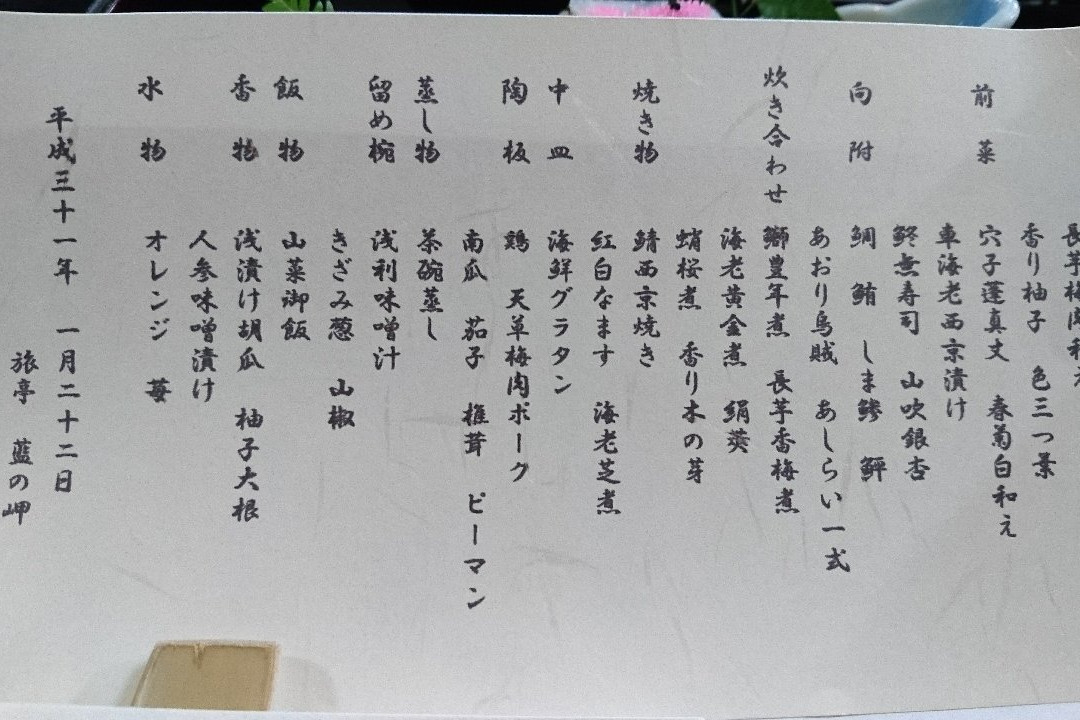 前菜
長芋梅
香り柚子 色三つ葉
穴子蓮真丈 春菊白和え
車海老西京漬け
鮗無寿司 山吹銀杏
向附
鯛 鮪 しま鯵 鮃
あおり烏賊 あしらい一式
炊き合わせ
鰤豊年煮 長芋香梅煮
海老黄金煮 絹莢
蛸桜煮 香り木の芽
焼き物
鯖西京焼き
紅白なます 海老芝煮
中皿
海鮮グラタン
陶板
鶏 天草梅肉ポーク
南瓜 茄子 椎茸 ピーマン
蒸し物
茶碗蒸し
留め椀
浅利味噌汁
きざみ葱 山椒
飯物
山菜御飯
香物
浅漬け胡瓜 柚子大根
人参味噌漬け
水物
オレンジ 苺
平成三十一年 一月二十二日
旅亭 藍の岬